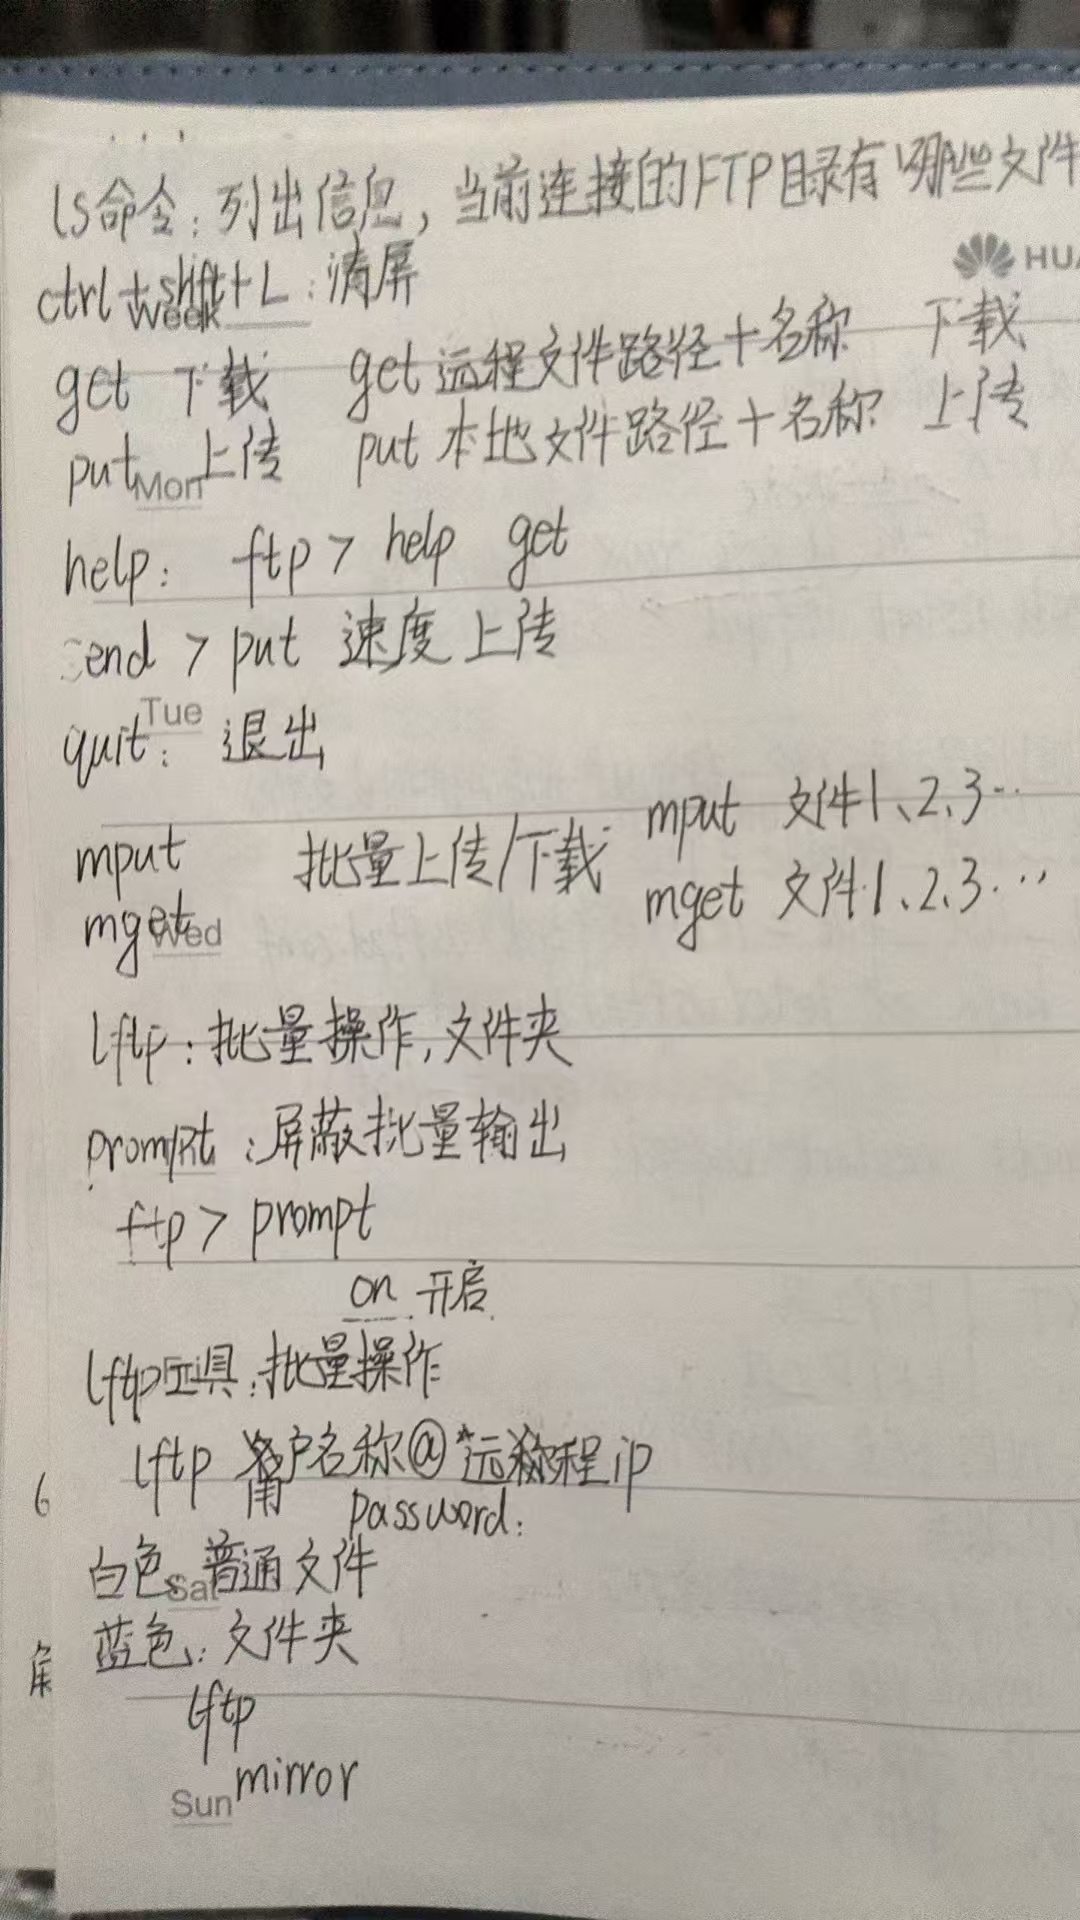 ls命令:列出信息,当前连接的FTP目录有哪些文件
HUA
ctrl+shift+L:清屏
Week
get 下载 get 远程文件路径+名称 下载
put 上传 put 本地文件路径+名称 上传
Mon
help: ftp> help get
send > put 速度上传
Tue
quit: 退出
mput 批量上传/下载 mput 文件1、2、3…
mget mget 文件1、2、3…
Wed
lftp:批量操作,文件夹
prompt:屏蔽批量输出
ftp> prompt
on 开启
lftp工具:批量操作
Fri
lftp 用户名称@远程ip
password:
6
白色:普通文件
Sat
蓝色:文件夹
lftp
mirror
Sun